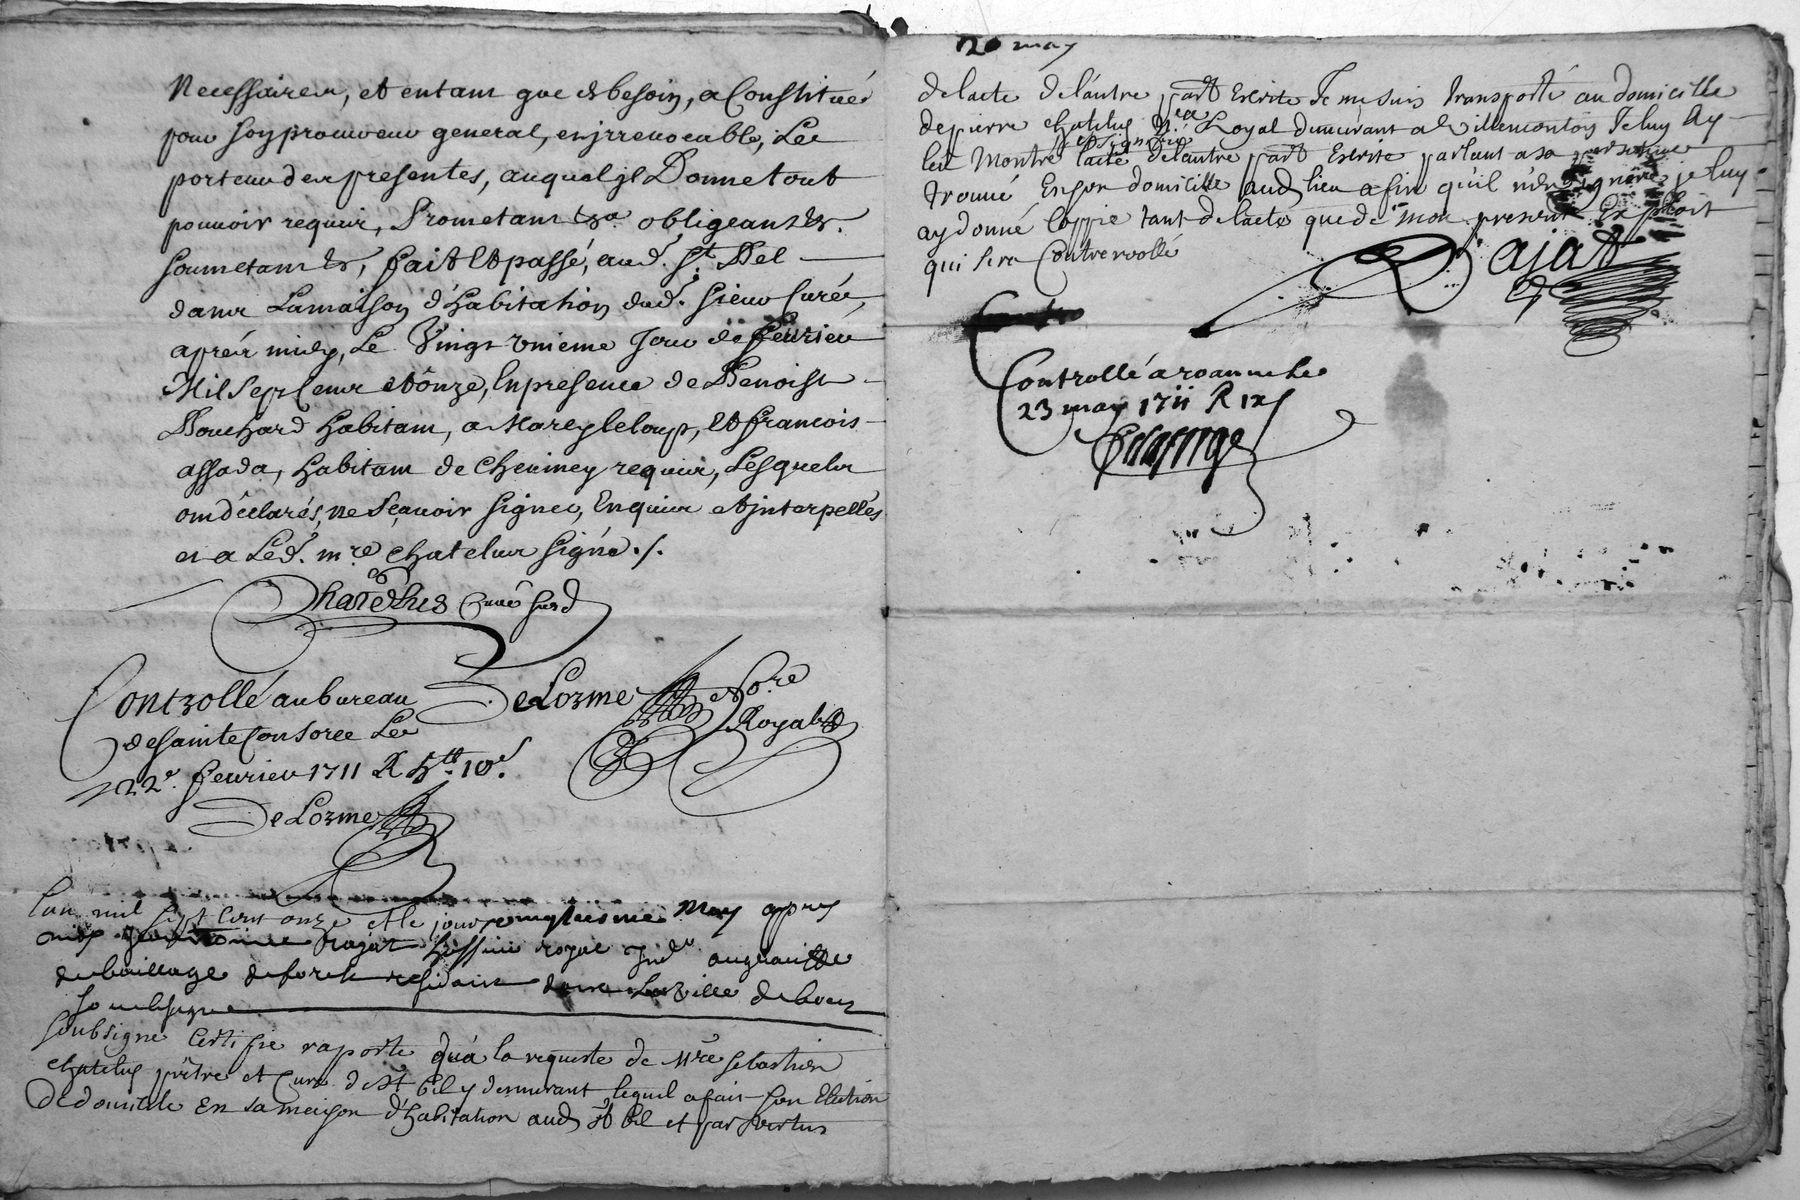 Necessaires, et entant que de besoin, a Constitué
pour son procureur general, en jrreuocable, Le
porteur des presentes, auquel jl Donne tout
pouuoir requis, Prometant &a. obligeant &c.
soumetant &c, fait et passé, aud. St. Bel
dans Lamaison d'habitation dud. sieur Curé,
aprés midy, Le Vingt vnieme Jour de feurier
Mil Sept Cens et ônze, En presence de Benoist
Bouchard habitant, a Marcy le loup, Et francois
assada, habitant de Cheuiney requis, Lesquels
ont déclarés, ne Sçauoir signer, Enquis et jnterpellés
et a Led. mre chatelus signé ./.
Chatelus Curé susd
Controllé au bureau
de sainte Consorce Le
22e. feurier 1711 R 5tt. 10s.
DeLorme
DeLorme Nore
Royal
Lan mil sept Cent onze et le jour vingtiesme May appres
midy Rajat huissier royal
du baillage de forests residant dans La Ville de boen
soubsigne
soubsigne Certifie raporte qu'a la requeste de Mre sebastien
chatelus prêtre et Curé de St Bel y demeurant lequel a fait son Election
De domicile En sa maison d'habitation aud St Bel et par vertus
20 may
de lacte de l'autre part Escrite Je me suis transporté au domicille
de pierre chatelus Royal demeurant a Villemontois Je luy Ay
leu Montré lacte de lautre part Escrite parlant a sa personne
trouué En son domicille aud lieu a fin qu'il n'en ignore je luy
ay donné Coppie tant de lacte que de mon present Exploit
qui sera Contrerollé
Rajat
Controllé a roanne le
23 may 1711 R